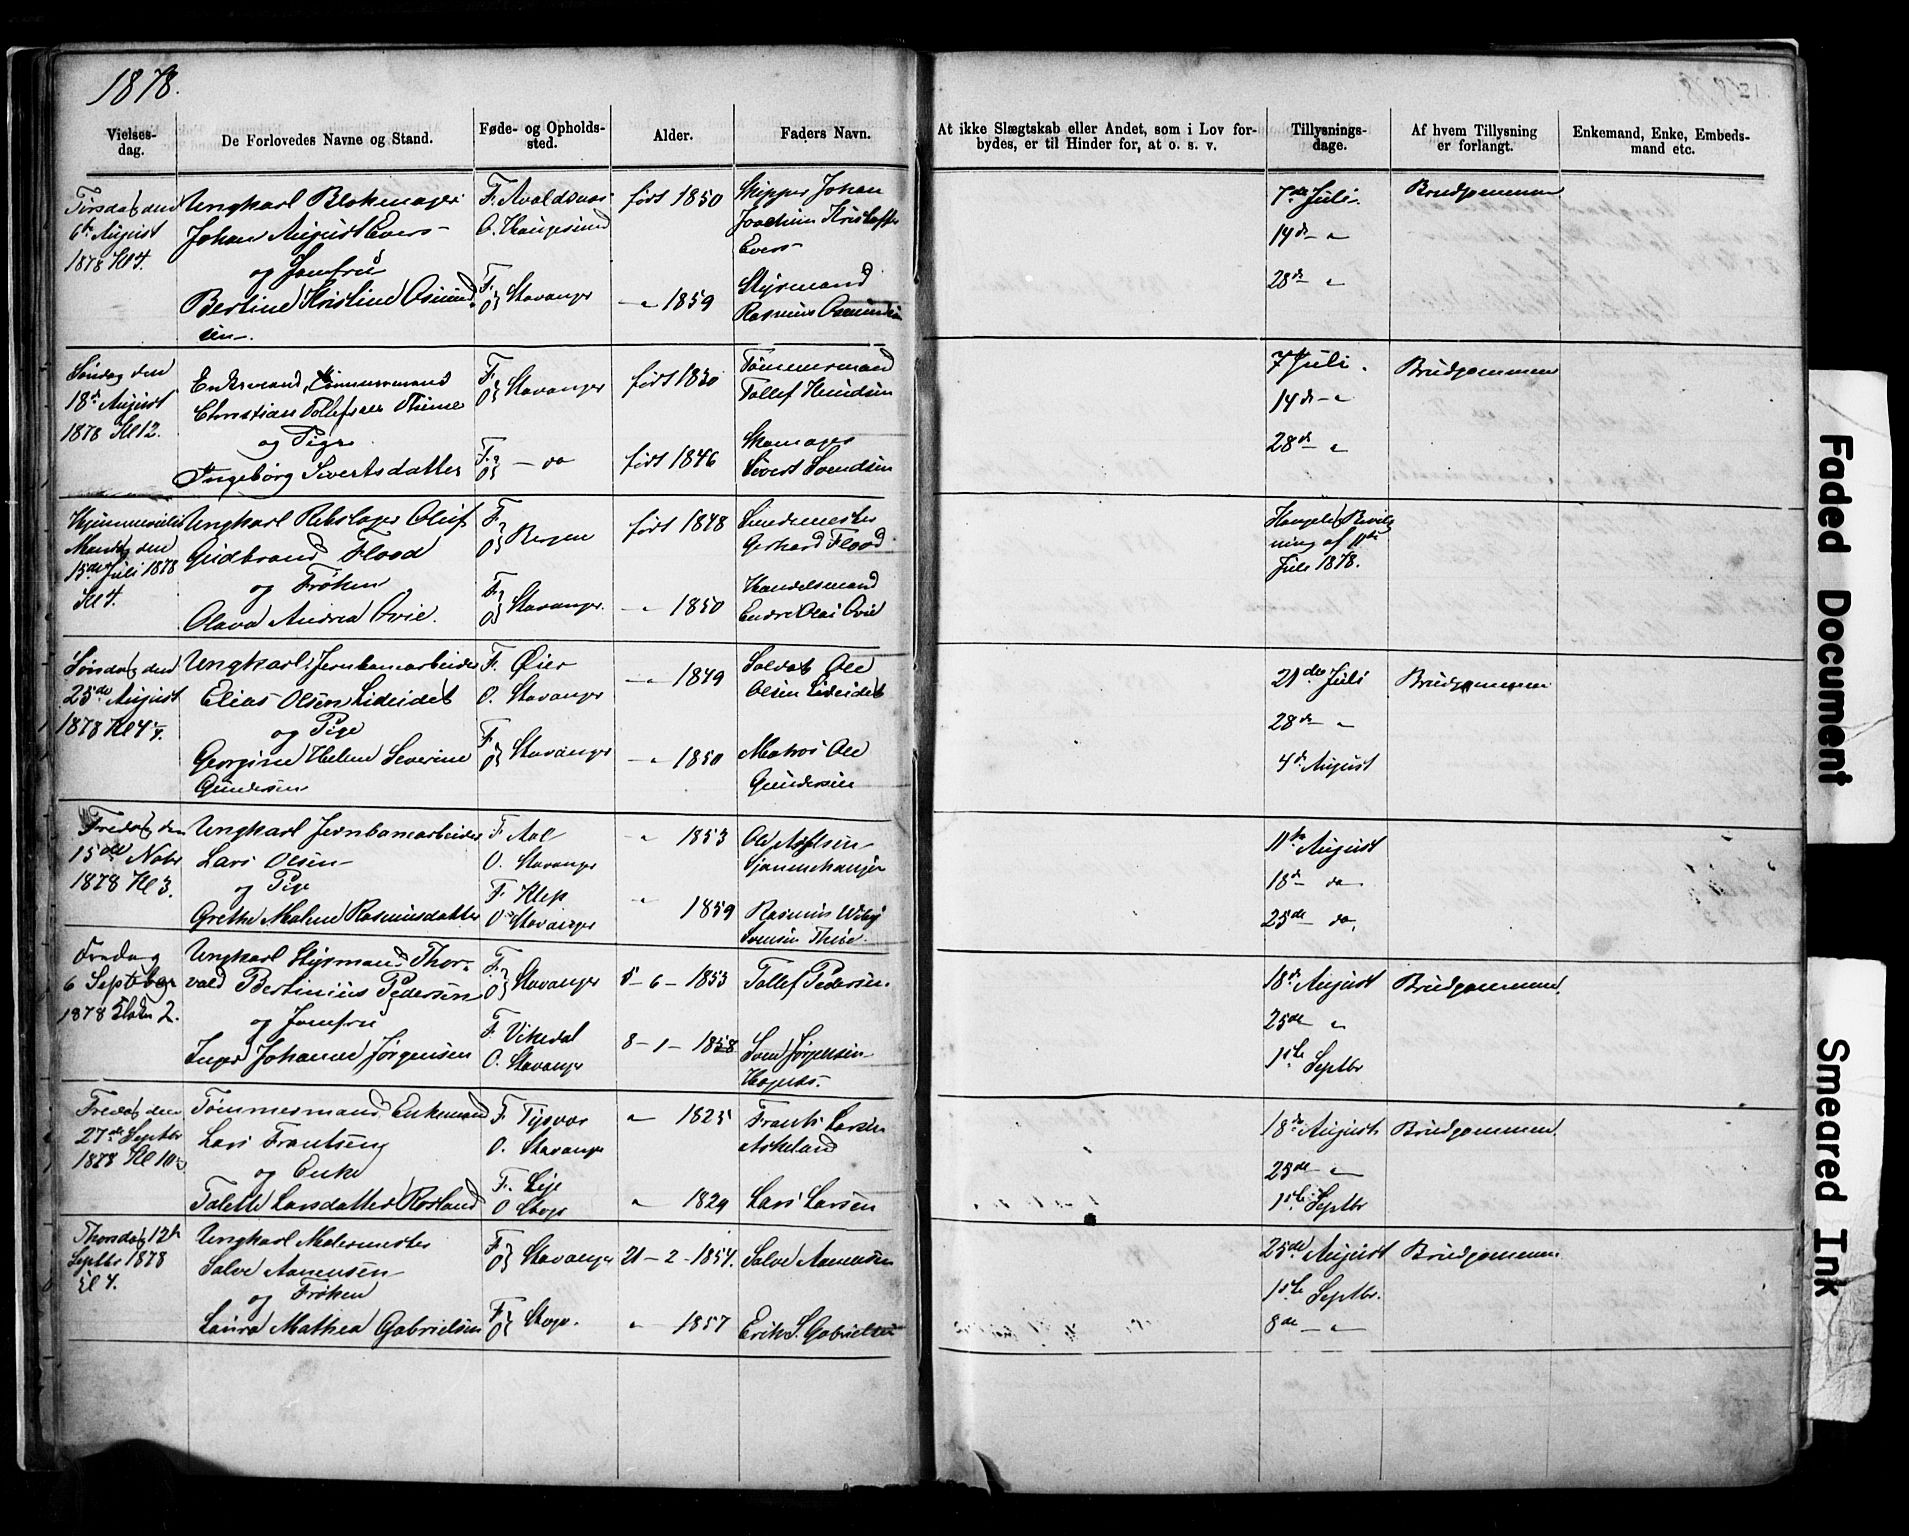 1878.
Vielses-
dag.
De Forlovedes Navne og Stand.
Føde- og Opholds-
sted.
Alder.
Faders Navn.
At ikke Slægtskab eller Andet, som i Lov for-
bydes, er til Hinder for, at o. s. v.
Tillysnings-
dage.
Af hvem Tillysning
er forlangt.
Enkemand, Enke, Embeds-
mand etc.
Tirsdag den
6te August
1878 Kl 4.
Ungkarl Blokmager
Johan August Evers
og Jomfru
Bertine Kristine Osmund
sen
F. Avaldsnæs
O. Haugesund
F.
O Stavanger
født 1850
" 1859
Skipper Johan
Joachim Kristoffer
Evers
Styrmand
Rasmus Osmundsen
7de Juli
14de "
28de "
Brudgommen
Søndag den
18de August
1878 Kl 12.
Enkemand, Tømmermand
Christian Tollefsen
og Pige
Ingeborg Sivertsdatter
F.
O Stavanger
F.
O do
født 1830
født 1846
Tømmermand
Tollef Knudsen
Skomager
Sivert Svendsen
7 Juli.
14de "
28de "
Brudgommen
Mandag den
15de Juli 1878
Kl 4.
Ungkarl Rebslager Oluf
Gudbrand Flood
og Frøken
Olava Andrea Ovie.
F.
O Bergen
F.
O Stavanger.
født 1848
" 1850
Gerhard Flood
Handelsmand
Endre Olai Ovie
Kongelig Bevilg
ning af 11te
Juli 1878.
Søndag den
25de August
1878 Kl 4 1/4.
Ungkarl Jernbanearbeider
Elias Olsen Lideidet
og Pige
Georgine Helene Severine
Gundersen
F. Øier
O. Stavanger
F.
O Stavanger
" 1849
" 1850
Soldat Ole
Olsen Lideidet
Matros Ole
Gundersen
21de Juli
28de "
4de August
Brudgommen
Fredag den
15de Novbr
1878 Kl 3.
Ungkarl Jernbanearbeider
Lars Olsen
og Pige
Grethe Malene Rasmusdatter
F. Aal
O. Stavanger
F. Klep
O Stavanger
" 1853
" 1859
Rasmus
11te August
18de do
25de do.
Fredag
6 September
1878 Klokn 2.
Ungkarl Styrmand Thor-
vald Bertinius Pedersen
og Jomfru
Inger Johanne Jørgensen
F.
O Stavanger
F. Vikedal
O. Stavanger
5 - 6 - 1853
8 - 1 - 1858
Tollef Pedersen
Svend Jørgensen
18de August
25de "
1ste Septbr
Brudgommen.
Fredag den
27de Septbr
1878 Kl 10
Tømmermand, Enkemand
Lars Frantsen
og Enke
Talette Larsdatter Rosland
F. Tysvær
O. Stavanger
F. Lye
O Stvgr
" 1825
" 1829
Frants Larsen
Askeland
Lars Larsen
18de August
25de "
1ste Septbr
Brudgommen.
Thorsdag 12te
Septbr 1878
Kl 4.
Ungkarl Malermester
Salve Aanensen
og Frøken
Laura Mathea Gabrielsen
F.
O Stavanger
F.
O Stvgr.
21 - 2 - 1854.
" 1857
Salve Aanensen
Erik S. Gabrielsen
25de August
1ste Septbr.
8de "
Brudgommen
Faded Document
Smeared Ink